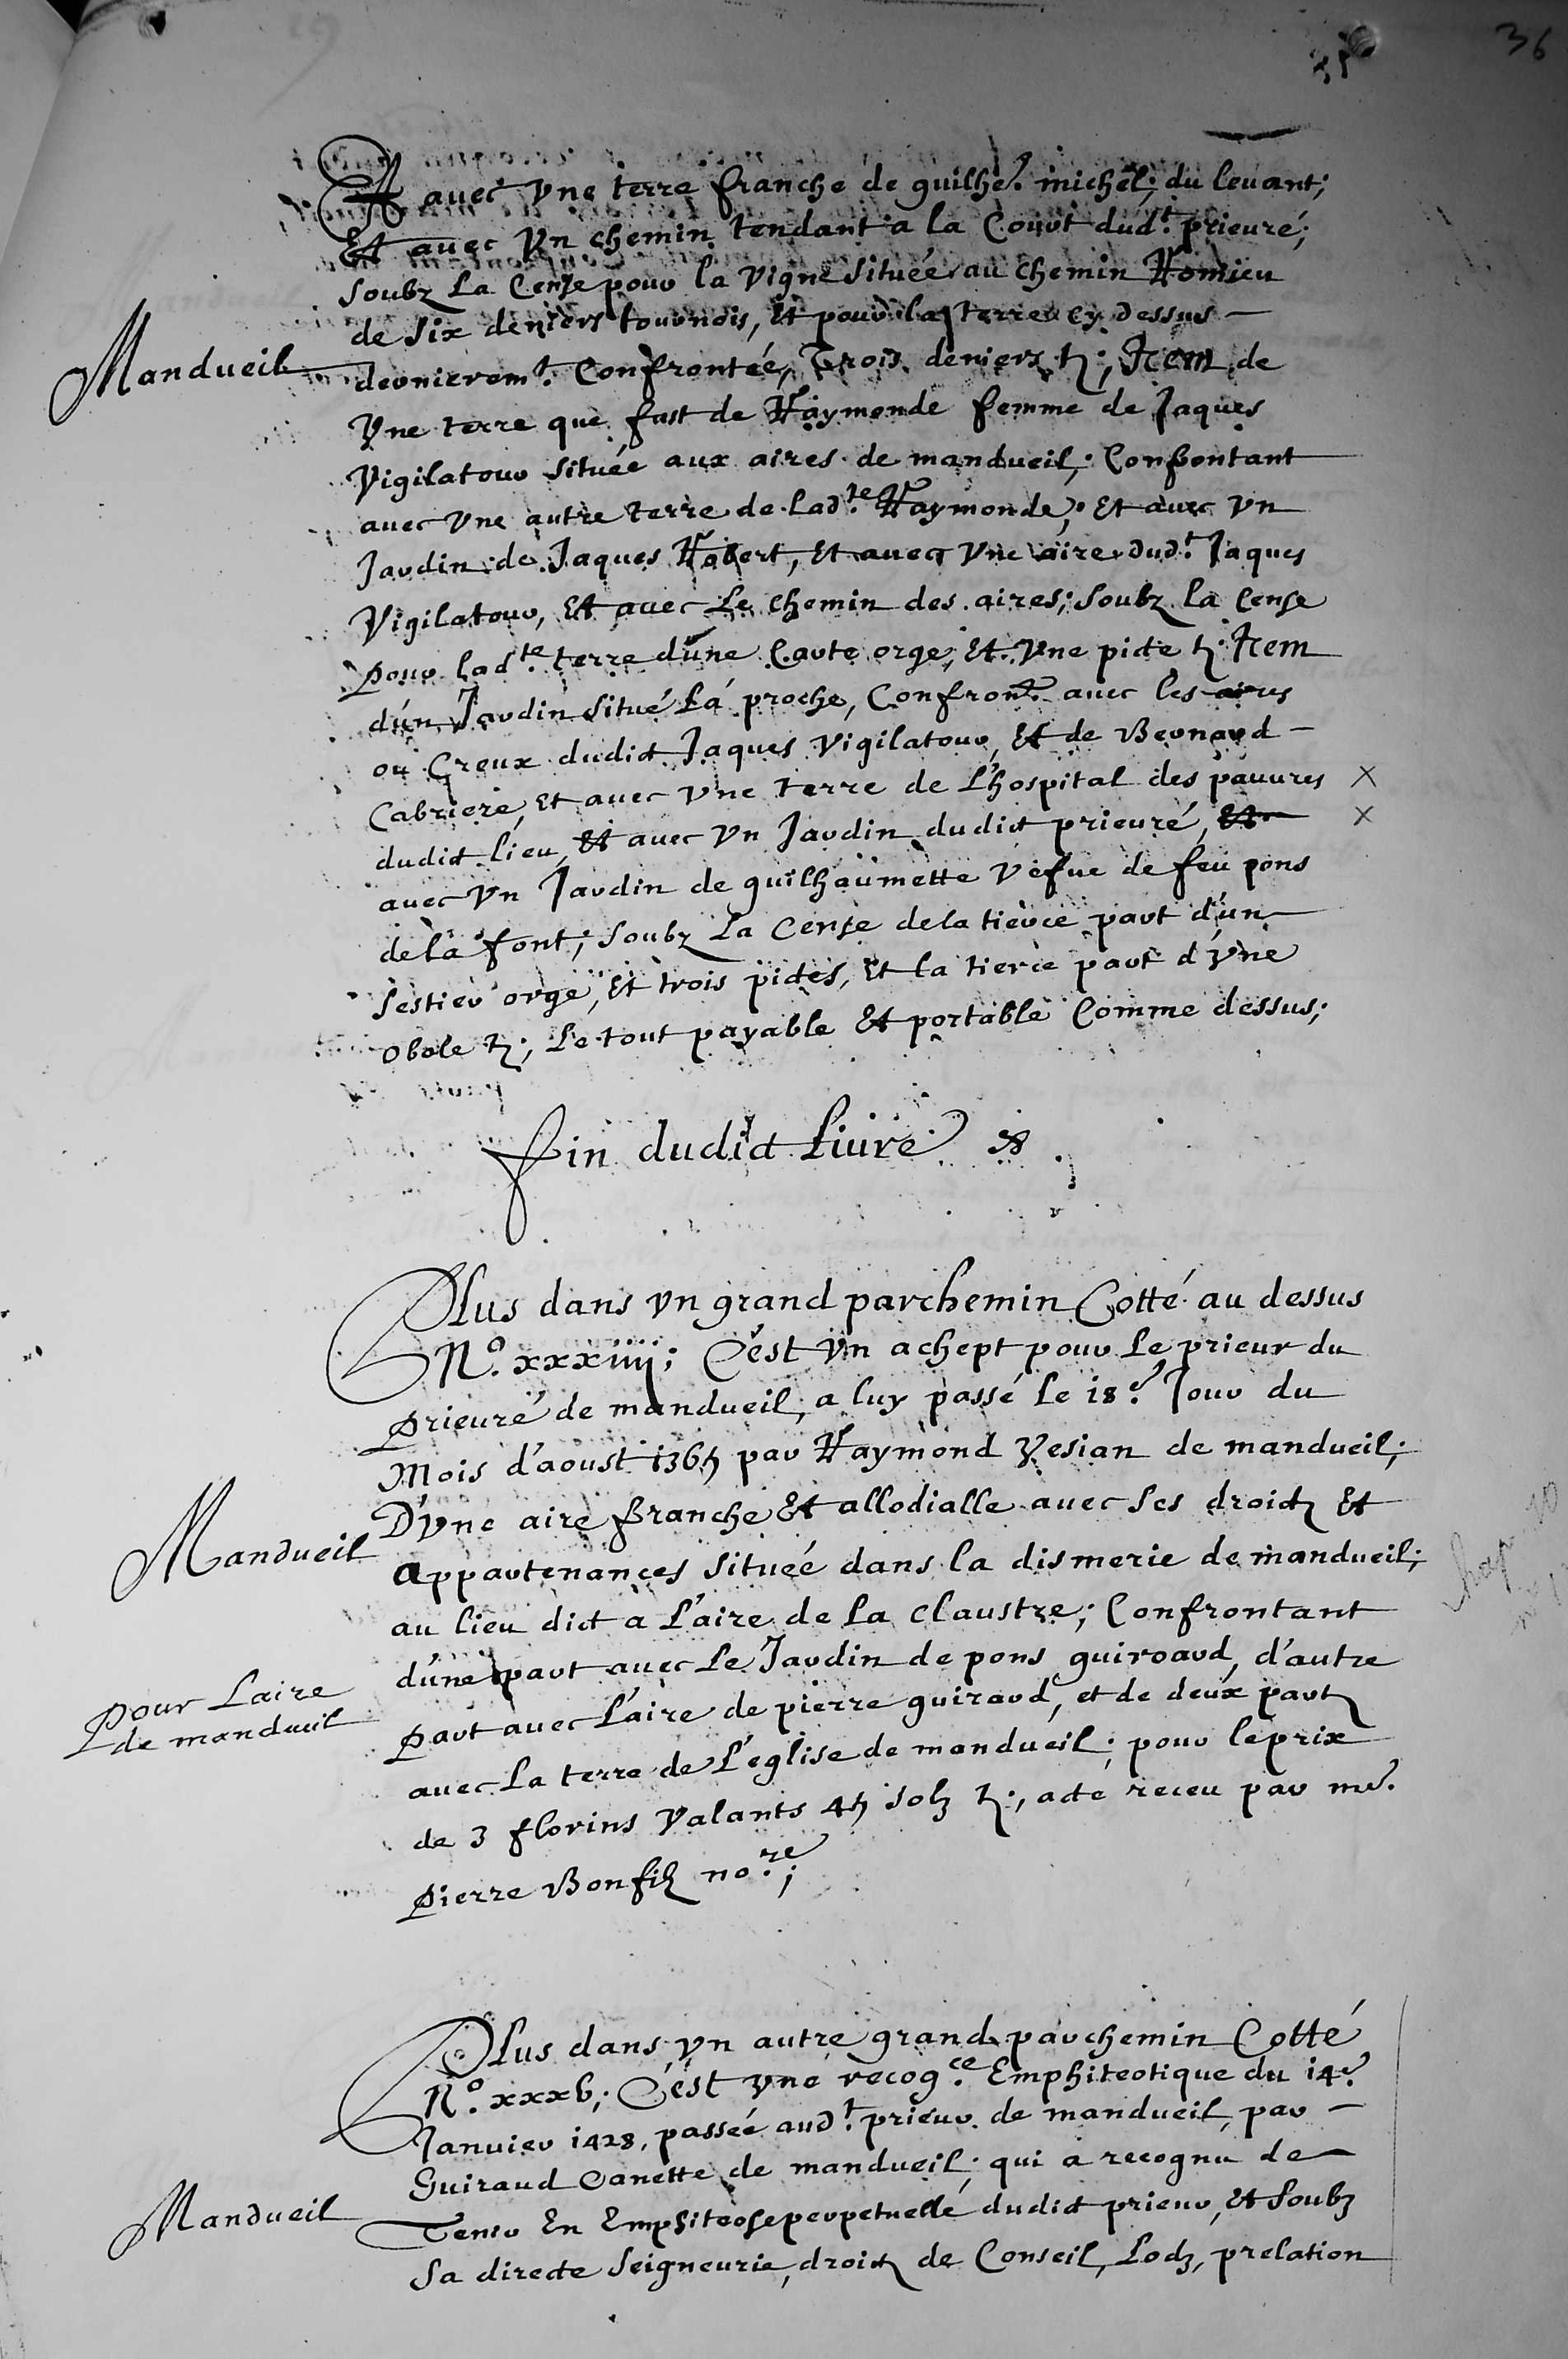 36
Et avec Une terre franche de guilhe. michel, du leuant;
Et avec Vn chemin tendant a la Court dud.t prieuré;
soubz La Cense pour la vigne située au chemin Romieu
de six deniers tournois, Et pour la terre cy dessus
Mandueil
dernierem.t Confrontée, Trois deniers t.; Item de
Vne terre que fust de Raymonde femme de Jaques
Vigilatour située aux aires de mandueil; Confrontant
avec Vne autre terre de lad.te Raymonde; Et avec Vn
Jardin de Jaques Rabert, Et avec Vne aire dud.t Jaques
Vigilatour, Et avec Le chemin des aires; soubz la Cense
pour lad.te terre d'une Carte orge, Et Vne picte t. Item
d'un Jardin situé La proche, Confront. avec les aires
ou Creux dudict Jaques Vigilatour, Et de Bernard
Cabriere, Et avec Vne terre de L'hospital des pauures X
dudict lieu, Et avec Vn Jardin dudict prieuré, Et X
avec Vn Jardin de guilhaumette vefue de feu pons
de la font; soubz La Cense de la tierce part d'un
sestier orge, Et trois pictes, Et la tierce part d'Vne
obole t.; Le tout payable Et portable Comme dessus;
fin dudict Liure
Plus dans vn grand parchemin Cotté au dessus
N.o xxxiiij; C'est Vn achept pour Le prieur du
prieuré de mandueil, a luy passé Le 18.e Jour du
Mois d'aoust 1365 par Raymond Vesian de mandueil;
D'Vne aire franche Et allodialle avec ses droictz Et
Mandueil
appartenances située dans la dismerie de mandueil;
au lieu dict a L'aire de la claustre; Confrontant
d'une part avec Le Jardin de pons guiraud, d'autre
pour Laire
de mandueil
part avec L'aire de pierre guiraud, et de deux partz
avec La terre de L'eglise de mandueil; pour le prix
de 3 florins Valants 45 solz t., acte receu par me.
pierre Bonfilz no.re;
Plus dans vn autre grand parchemin Cotté
N.o xxxb; C'est vne recog.ce Emphiteotique du 14.e
Januier 1428, passée aud.t prieur de mandueil, par
Guiraud Canette de mandueil; qui a recognu de
Mandueil
Tenir En Emphiteose perpetuelle dudict prieur, Et soubz
sa directe seigneurie, droictz de Conseil, Lodz, prelation